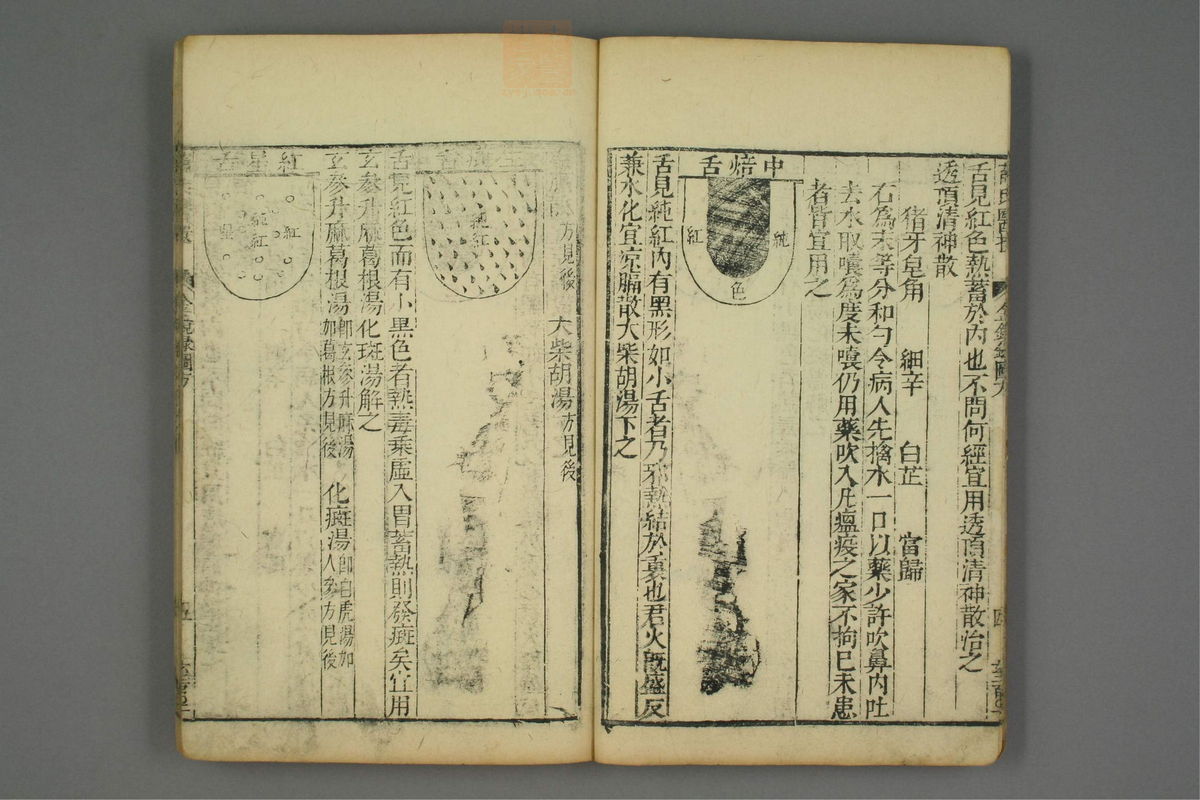 舌見紅色熱蓄於內也不問何經宜用透頂清神散治之
透頂清神散
猪牙皂角 細辛 白芷 當歸
右為末等分和勻令病人先擒水一口以藥少許吹鼻內吐
去水取嚏爲度未嚏仍用藥吹入凡瘟疫之家不拘已未患
者皆宜用之
中焙舌
純
紅
色
舌見純紅內有黑形如小舌者乃邪熱結於裏也君火旣盛反
兼水化宜涼膈散大柴胡湯下之
方見後 大柴胡湯方見後
生斑舌
純紅
舌見紅色而有小黑色者熱毒乘虛入胃蓄熱則發斑矣宜用
玄參升麻葛根湯化斑湯解之
玄參升麻葛根湯卽玄參升麻湯如葛根方見後 化斑湯卽白虎湯如人參方見後
紅星舌
紅
純紅
星